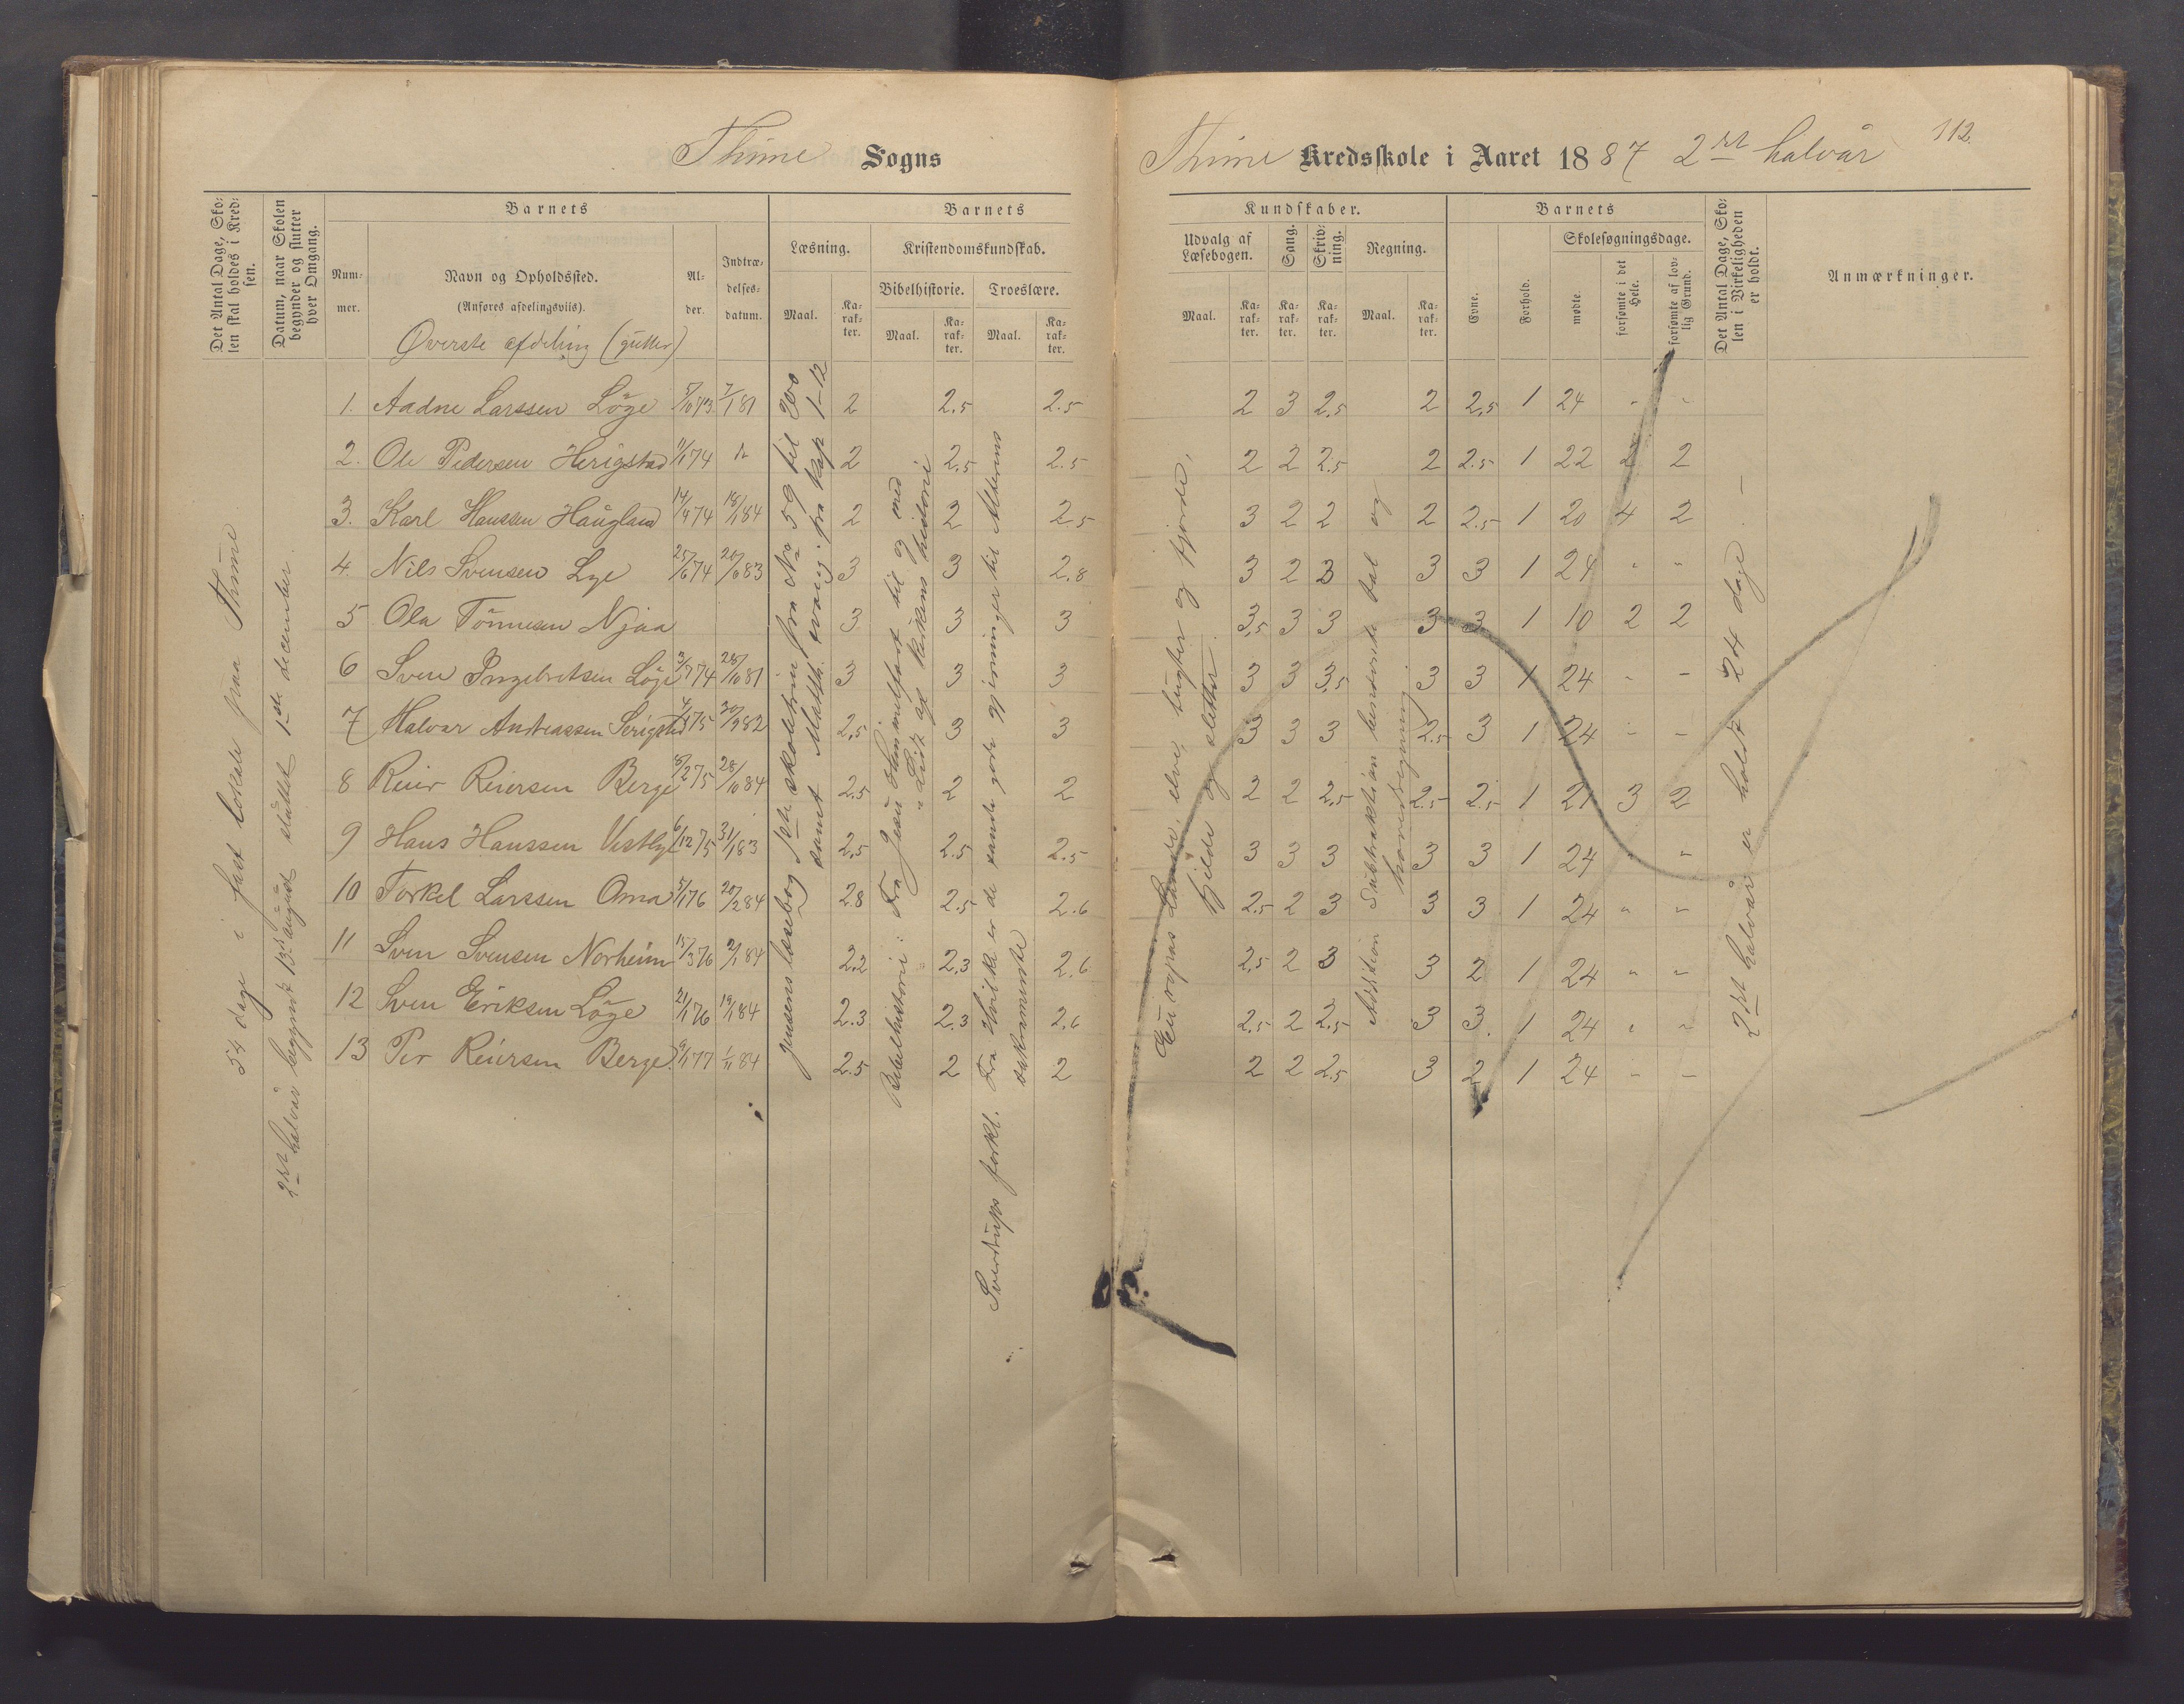 Thime Sogns
Thime Kredsskole i Aaret 1887 2det halvår
112
Det Antal Dage, Skolen skal holdes i Kredsen.
Datum, naar Skolen begynder og slutter hver Omgang.
Barnets
Nummer.
Navn og Opholdssted.
(Anføres afdelingsviis).
Øverste afdeling (gutter)
Alder.
Indtrædelsesdatum.
Barnets
Læsning.
Maal.
Karakter.
Kristendomskundskab.
Bibelhistorie.
Maal.
Karakter.
Troeslære.
Maal.
Karakter.
Kundskaber.
Udvalg af Læsebogen.
Maal.
Karakter.
Sang.
Karakter.
Skrivning.
Karakter.
Regning.
Maal.
Karakter.
Barnets
Evne.
Forhold.
Skolesøgningsdage.
mødte.
forsømte i det Hele.
forsømte af lovlig Grund.
Det Antal Dage, Skolen i Virkeligheden er holdt.
Anmærkninger.
54 dage i fast lokale paa Thime
2det halvår begynt 13de august sluttet 1ste december.
Jensens læsebog 1ste skoletrin fra No 59 til 200
samt Matth. evang. fra kap 1-12
Bibelhistorie: Fra Jesu Himmelfart til og med
"Lidt af kirkens historie
Sverdrups forkl. Fra Hvilke er de sande gode gjerninger til Alterens
sakramente
Europas lande, elve, bugter og fjorde,
fjelde og sletter.
Addition Subtraktion benævnte tal og
hovedregning
2det halvår er holdt 24 dage.
1. Aadne Larssen Löge 5/10 73 7/1 81 2 2.5 2.5 2 3 2.5 2 2.5 1 24 " "
2. Ole Pedersen Herigstad 11/1 74 2 2.5 2.5 2 2 2.5 2 2.5 1 22 2 2
3. Karl Hanssen Haugland 14/9 74 18/1 84 2 2 2.5 3 2 2 2 2.5 1 20 4 2
4. Nils Svensen Lye 25/6 74 20/10 83 3 3 2.8 3 2 3 3 3 1 24 " "
5 Ola Tönnesen Njaa 3 3 3 3.5 3 3 3 3 1 10 2 2
6 Sven Ingebretsen Löge 3/7 74 28/10 81 3 3 3 3 3 3.5 3 3 1 24 - -
7 Halvar Andreassen Serigstad 30/9 82 2.5 3 3 3 3 3 2.5 3 1 24 - -
8 Reier Reiersen Berge 8/2 75 28/10 84 2.5 2 2 2 2 2.5 2.5 2.5 1 21 3 2
9 Hans Hanssen Vestlye 6/12 75 31/1 83 2.5 2.5 2.5 3 3 3 3 3 1 24 " "
10 Torkel Larssen Oma 5/1 76 20/2 84 2.8 2.5 2.6 2.5 2 3 3 3 1 24 " "
11 Sven Svensen Norheim 15/3 76 2/1 84 2.2 2.3 2.6 2.5 2 3 3 2 1 24 " "
12 Sven Eriksen Löge 21/1 76 19/1 84 2.3 2.3 2.6 2.5 2 2.5 3 3. 1 24 " "
13 Per Reiersen Berge 9/1 77 1/11 84 2.5 2 2 2 2 2.5 3 2 1 24 - -